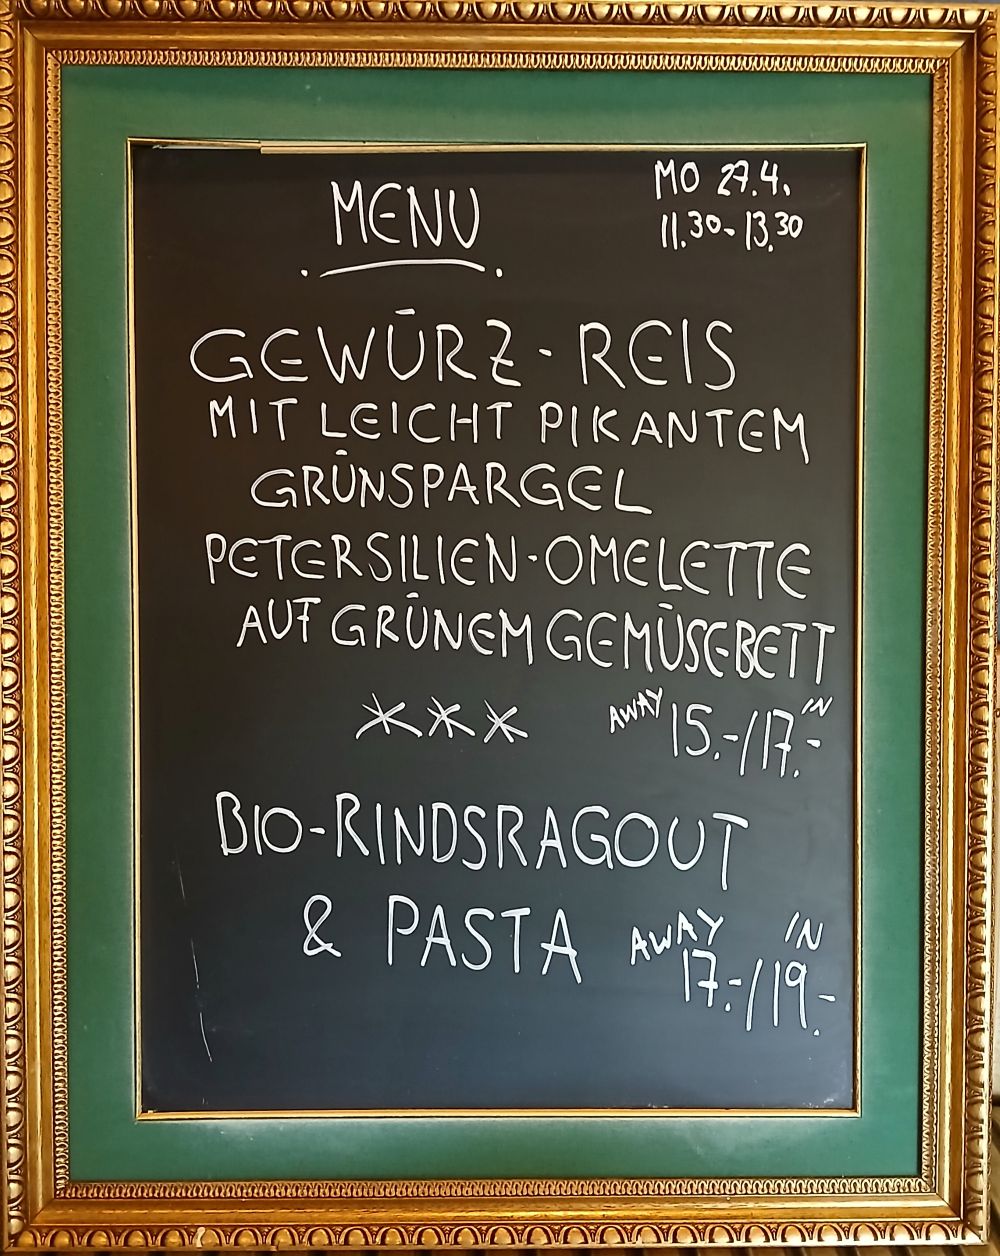 MENU
MO 27.4.
11.30-13.30
GEWÜRZ-REIS
MIT LEICHT PIKANTEM
GRÜNSPARGEL
PETERSILIEN-OMELETTE
AUF GRÜNEM GEMÜSEBETT
*** AWAY 15.-/17.- IN
BIO-RINDSRAGOUT
& PASTA AWAY 17.-/19.- IN